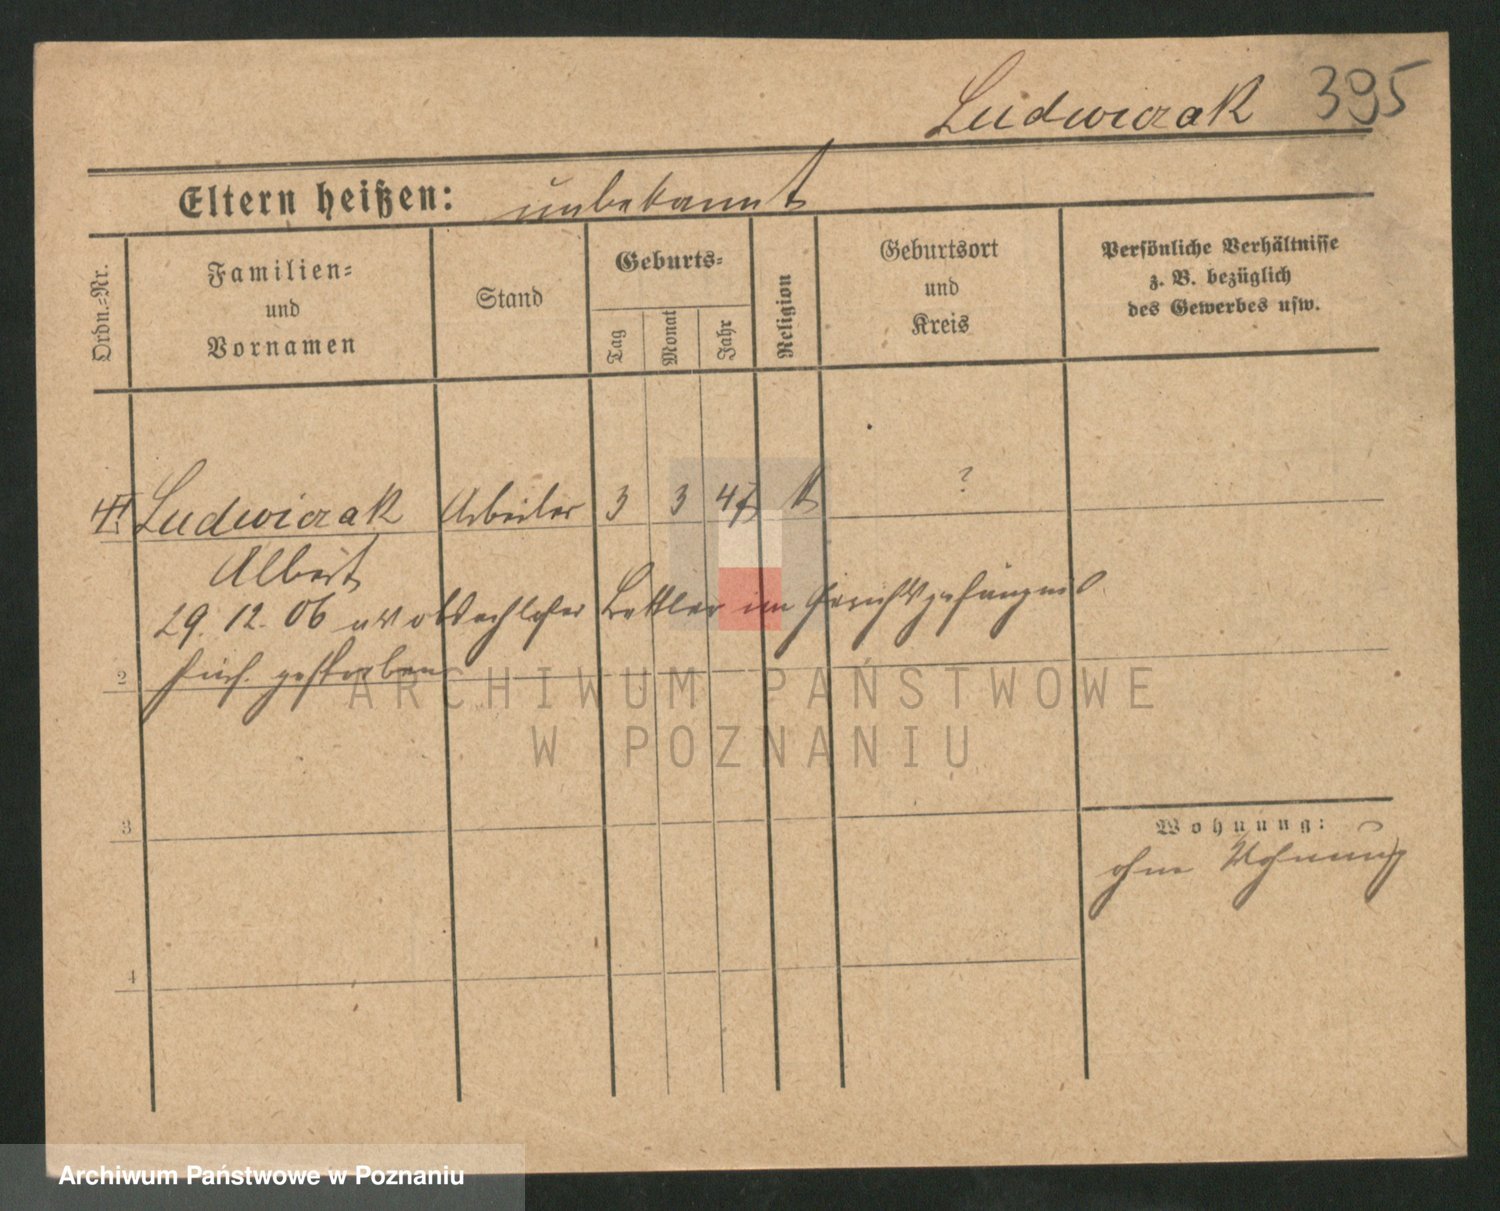 Ludwiczak 395
Eltern heißen: unbekannt
Ordn.=Nr.
Familien=
und
Vornamen
Stand
Geburts=
Tag
Monat
Jahr
Religion
Geburtsort
und
Kreis
Persönliche Verhältnisse
z. B. bezüglich
des Gewerbes usw.
Ludwiczak Arbeiter 3 3 47 k ?
Albert
29. 12. 06 als obdachloser Bettler im Gerichtsgefängnis
hies. gestorben
2
3
4
Wohnung:
ohne Wohnung
ARCHIWUM PAŃSTWOWE
W POZNANIU
Archiwum Państwowe w Poznaniu